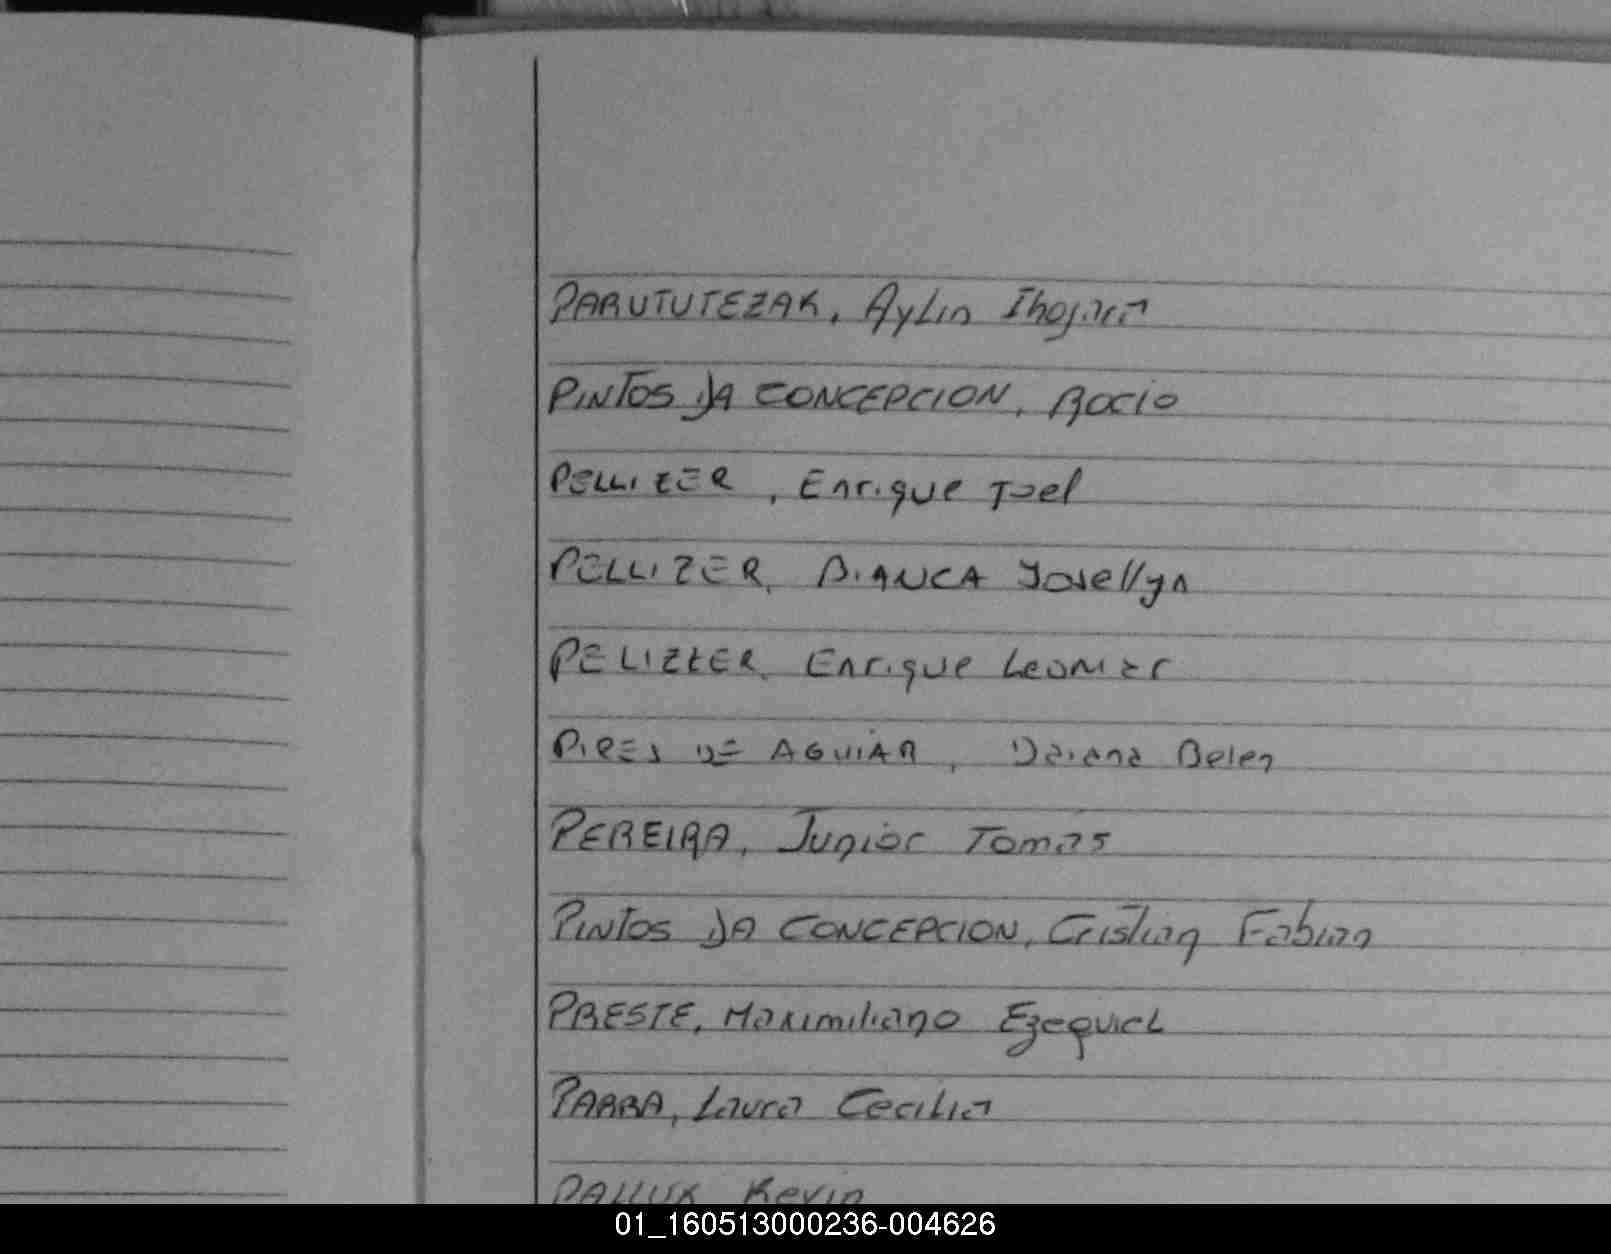 PARUTUTEZAK, Aylin Ihojara
PINTOS DA CONCEPCION, Rocio
PELLIZER, Enrique Joel
PELLIZER, BIANCA Joselyn
PELIZZER, Enrique Leonel
PIRES DE AGUIAR, Daiana Belen
PEREIRA, Junior Tomas
PINTOS DA CONCEPCION, Cristian Fabian
PRESTE, Maximiliano Ezequiel
PARRA, Laura Cecilia
Kevin
01_160513000236-004626